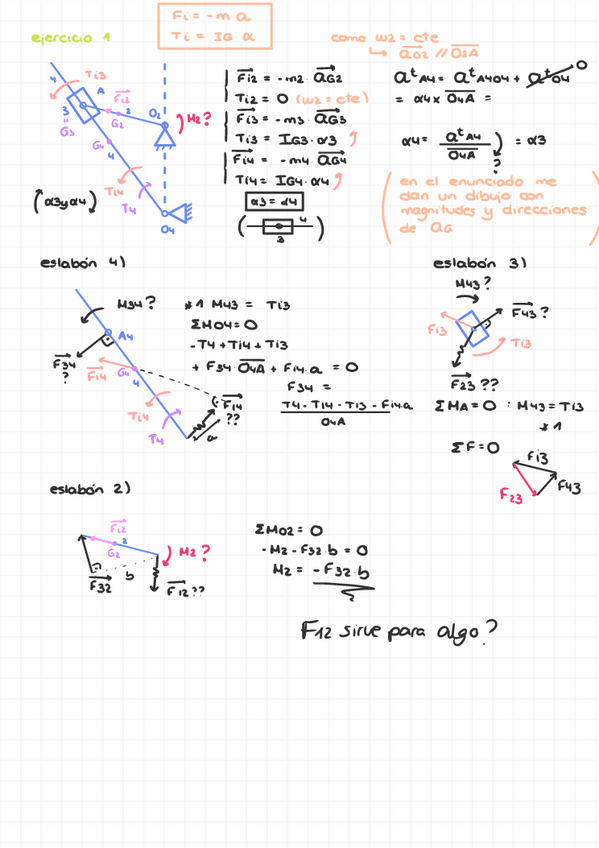 Fi = -m a
Ti = IG α
ejercicio 1
como ω2 = cte
↳ aO2 // O2A
4
Ti3
A
Fi2
3
2
G2
O2
M2?
G3
G4
4
Ti4
T4
O4
(α3 y α4)
Fi2 = -m2 · aG2
Ti2 = 0 (ω2 = cte)
Fi3 = -m3 · aG3
Ti3 = IG3 · α3
Fi4 = -m4 · aG4
Ti4 = IG4 · α4
α3 = α4
4
3
aᵗA4 = aᵗA4O4 + aᵗO4 0
= α4 x O4A =
α4 = aᵗA4 / O4A = α3
?
en el enunciado me
dan un dibujo con
magnitudes y direcciones
de aG
eslabón 4)
M34?
A4
F34
?
Fi4
G4
4
Ti4
T4
F14
??
a
*1 M43 = Ti3
ΣMO4 = 0
-T4 + Ti4 + Ti3
+ F34 · O4A + Fi4 · a = 0
F34 =
T4 - Ti4 - Ti3 - Fi4·a
O4A
eslabón 3)
M43?
F43?
Fi3
Ti3
F23 ??
ΣMA = 0 : M43 = Ti3
*1
ΣF = 0
Fi3
F23
F43
eslabón 2)
Fi2
2
G2
M2?
F32
b
F12 ??
ΣMO2 = 0
-M2 - F32 · b = 0
M2 = -F32 · b
F12 sirve para algo?